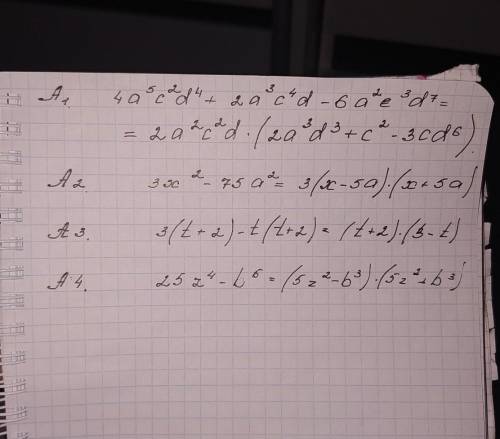 A1. 4a⁵c²d⁴ + 2a³c⁴d - 6a²c³d⁷ =
= 2a²c²d · (2a³d³ + c² - 3cd⁶).
A2. 3x² - 75a² = 3(x - 5a) · (x + 5a)
A3. 3(t + 2) - t(t + 2) = (t + 2) · (3 - t)
A4. 25z⁴ - b⁶ = (5z² - b³) · (5z² + b³)